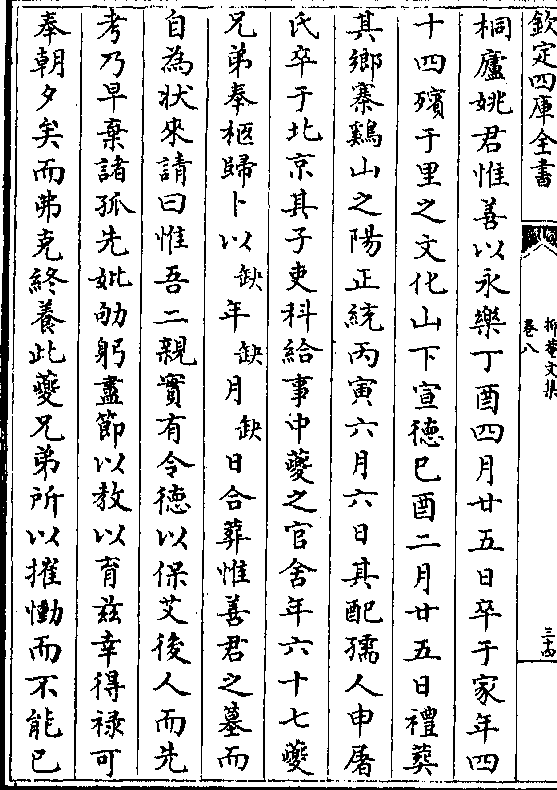 欽定四庫全書
抑菴文集
卷八
三十四
桐廬姚君惟善以永樂丁酉四月廿五日卒于家年四
十四殯于里之文化山下宣德己酉二月廿五日禮葬
其鄉寨鷄山之陽正統丙寅六月六日其配孺人申屠
氏卒于北京其子吏科給事中夔之官舍年六十七夔
兄弟奉柩歸卜以缺年缺月缺日合葬惟善君之墓而
自為狀來請曰惟吾二親實有令德以保艾後人而先
考乃早棄諸孤先妣劬躬盡節以教以育兹幸得祿可
奉朝夕矣而弗克終養此夔兄弟所以摧慟而不能已